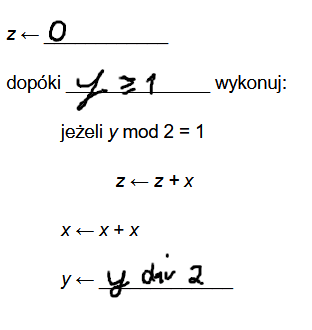 z ← 0
dopóki y ⩾ 1 wykonuj:
jeżeli y mod 2 = 1
z ← z + x
x ← x + x
y ← y div 2